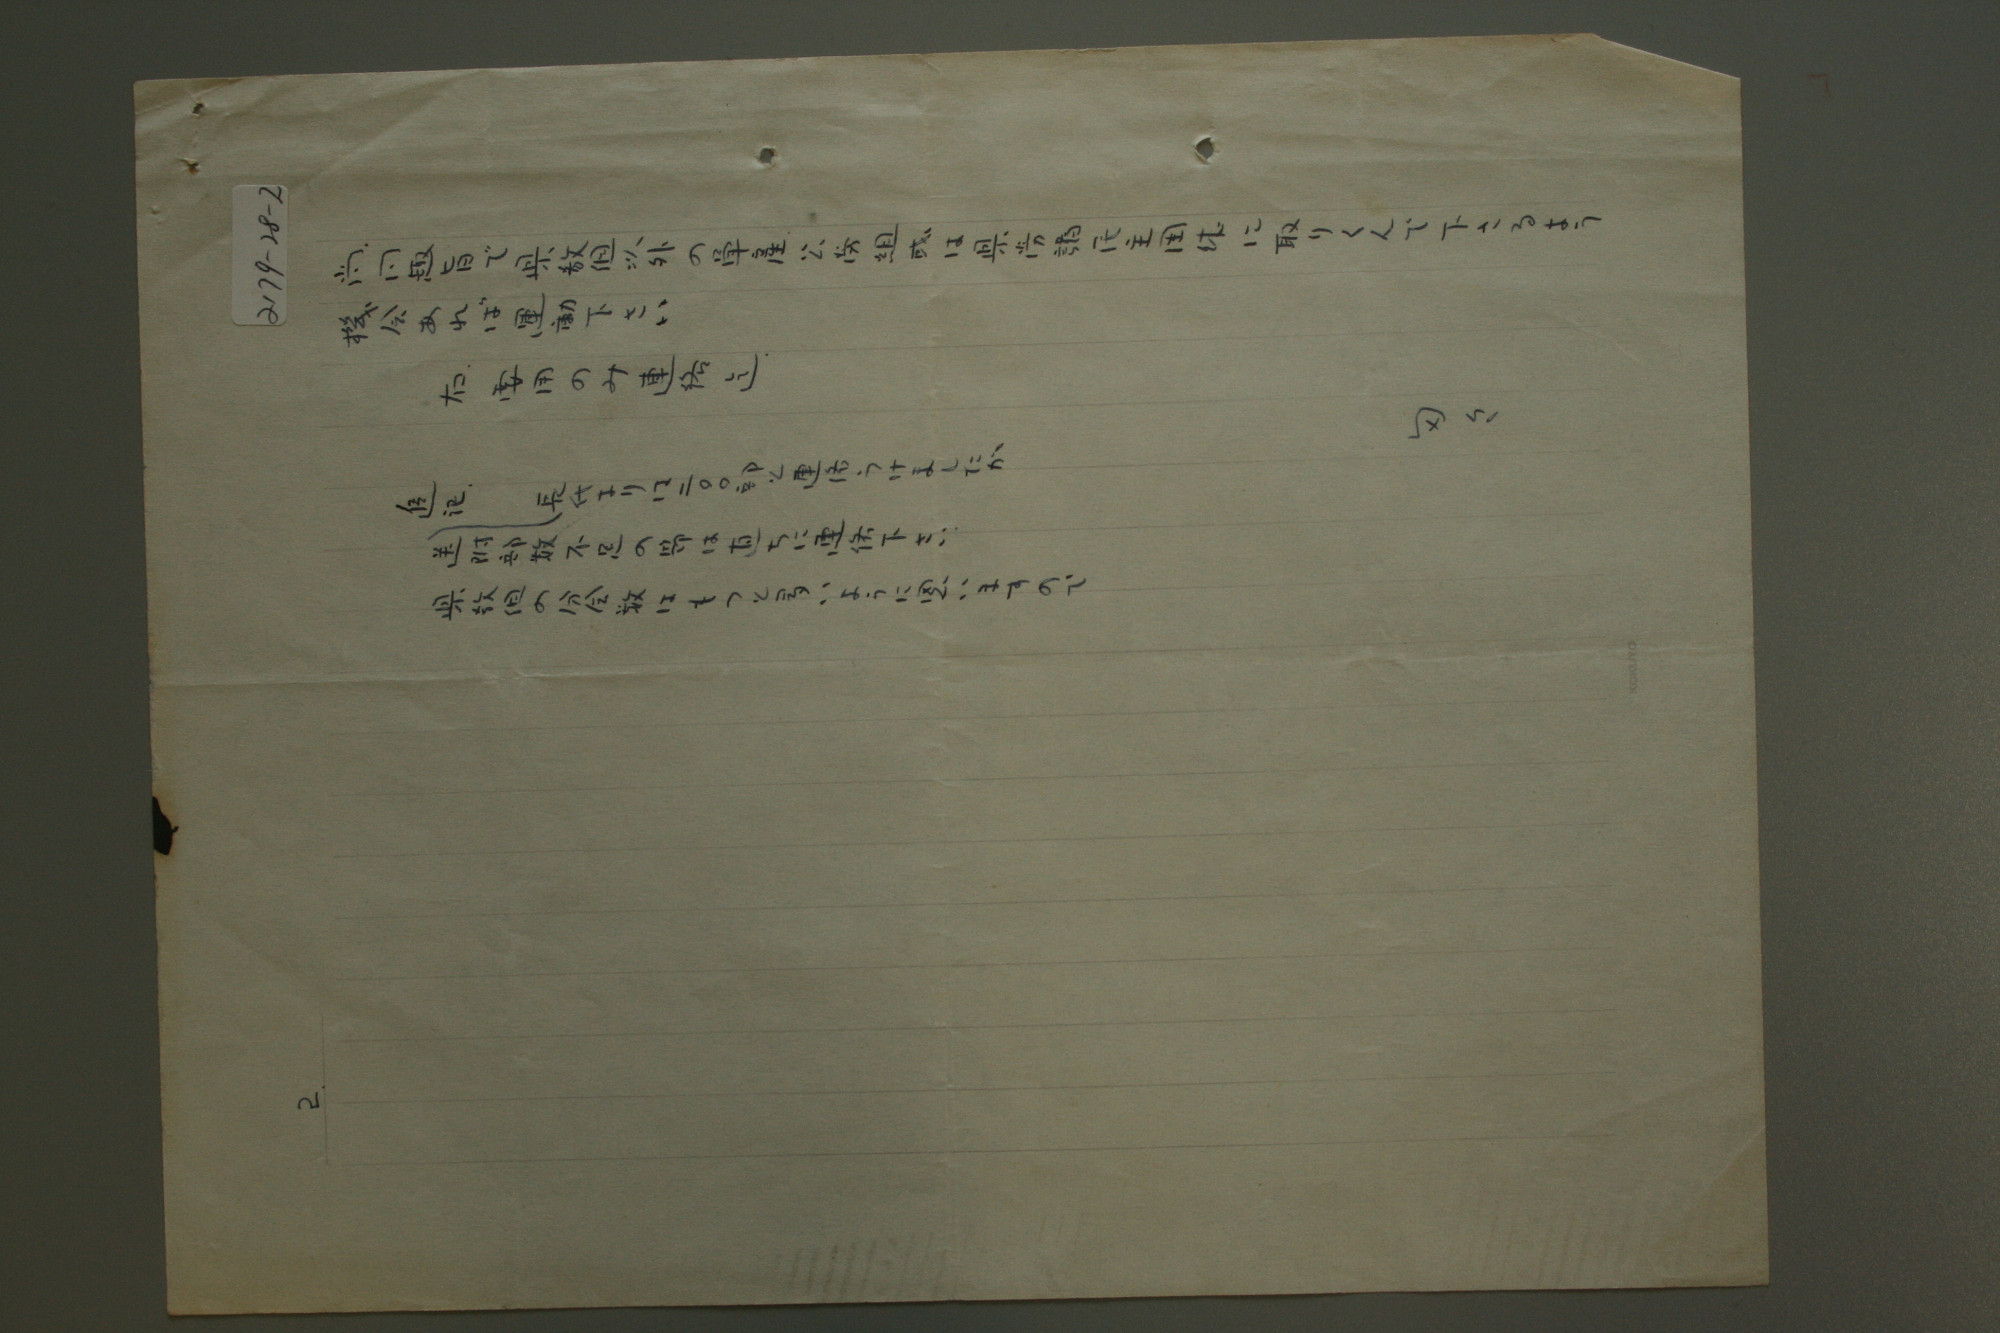 2179-28-2
尚、同趣旨で県教組以外の単産公労組或は県労諸民主団体に取りくんで下さるよう
機会あれば運動下さい
右、要用のみ連絡迄
匆々
追記、長代よりは二〇〇部と連絡うけましたが、
送附部数不足の節は直ちに連絡下さい、
県教組の分会数はもっと多いように思いますので
2.
KOKUYO